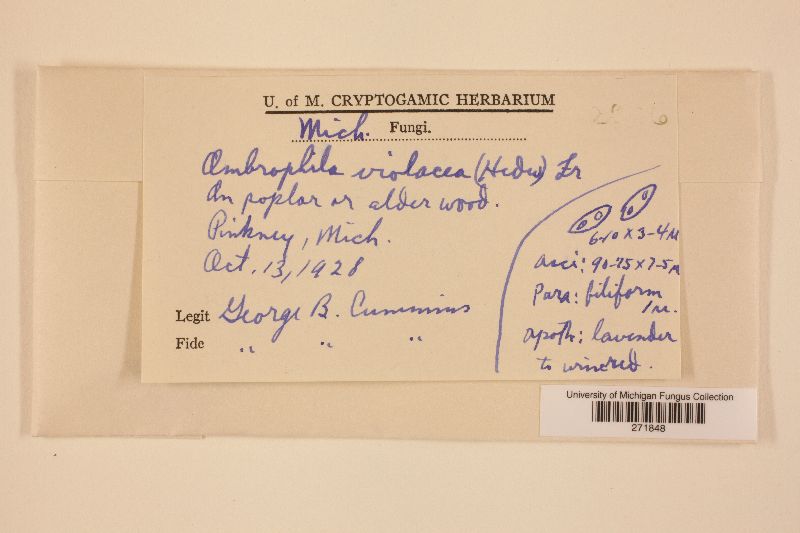 U. of M. CRYPTOGAMIC HERBARIUM
Mich. Fungi.
Ombrophila violacea (Hedw) Fr
On poplar or alder wood.
Pinkney, Mich.
Oct. 13, 1928
Legit George B. Cummins
Fide " " "
6-10 x 3-4 µ
asci: 90-75 x 7-5 µ
Para: filiform
1 µ.
apoth: lavender
to winered.
University of Michigan Fungus Collection
271848